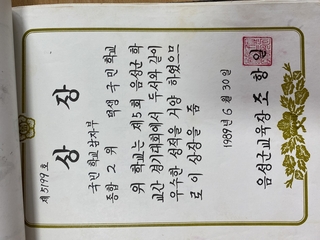 제5199호
상 장
국민학교남자부
종합 2 위 덕생 국민학교
위 학교는 제5회 음성군 학
교간 경기대회에서 두서와 같이
우수한 성적을 거양 하였으므
로 이 상장을 줌
1989년 6월 30일
음성군교육장 조 항 일